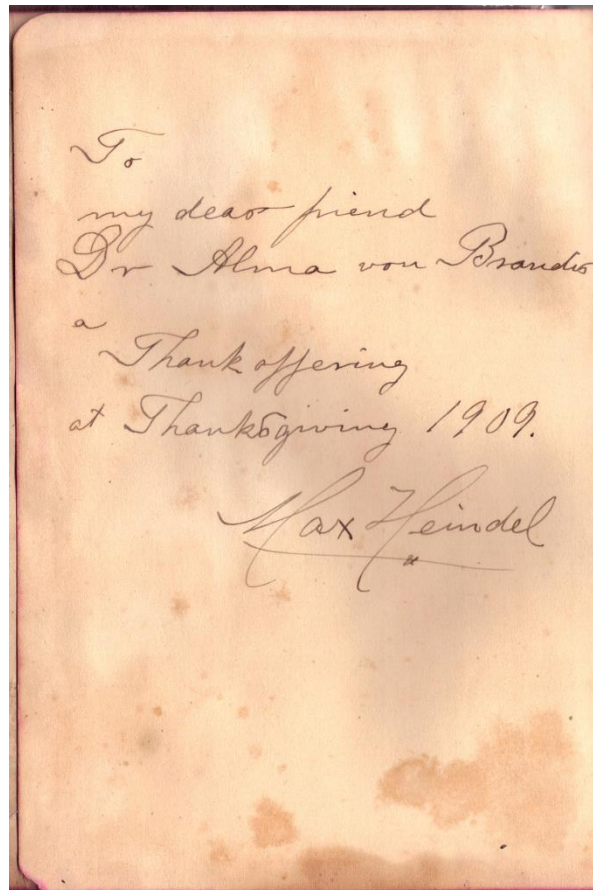 To
my dear friend
Dr Alma von Brandis
a
Thank offering
at Thanksgiving 1909.
Max Heindel